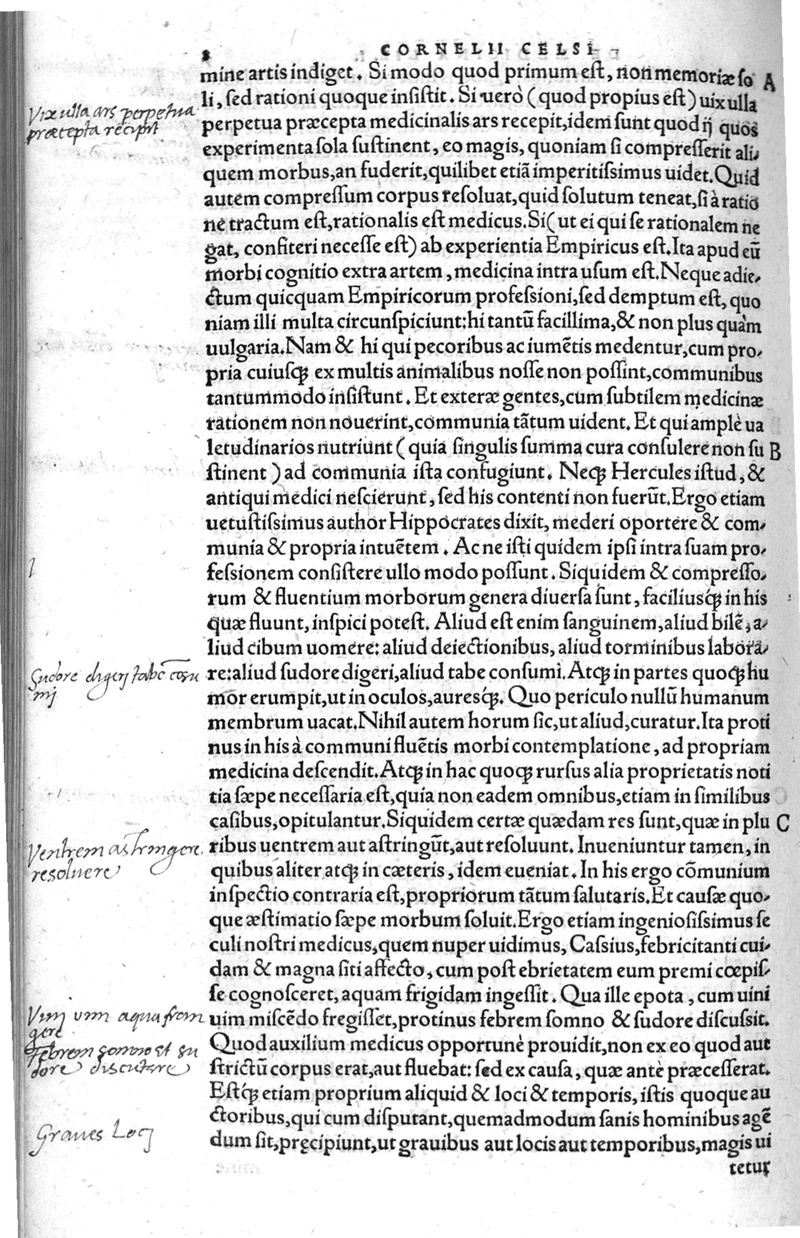 8 CORNELII CELSI
mine artis indiget. Si modo quod primum eſt, non memoriæ ſo A
li, ſed rationi quoque inſiſtit. Si uerò (quod propius eſt) uix ulla
Vix ulla ars perpetua
præcepta recipit
perpetua præcepta medicinalis ars recepit, idem ſunt quod ij quos
experimenta ſola ſuſtinent, eo magis, quoniam ſi compreſſerit ali-
quem morbus, an fuderit, quilibet etiã imperitiſsimus uidet. Quid
autem compreſſum corpus reſoluat, quid ſolutum teneat, ſi à ratio
ne tractum eſt, rationalis eſt medicus. Si (ut ei qui ſe rationalem ne
gat, confiteri neceſſe eſt) ab experientia Empiricus eſt. Ita apud eũ
morbi cognitio extra artem, medicina intra uſum eſt. Neque adie-
ctum quicquam Empiricorum profeſsioni, ſed demptum eſt, quo
niam illi multa circunſpiciunt: hi tantũ facillima, & non plus quàm
uulgaria. Nam & hi qui pecoribus ac iumẽtis medentur, cum pro-
pria cuiuſcꝫ ex multis animalibus noſſe non poſsint, communibus
tantummodo inſiſtunt. Et exteræ gentes, cum ſubtilem medicinæ
rationem non nouerint, communia tãtum uident. Et qui amplè ua
letudinarios nutriunt (quia ſingulis ſumma cura conſulere non ſu B
ſtinent) ad communia iſta confugiunt. Necꝫ Hercules iſtud, &
antiqui medici neſcierunt, ſed his contenti non fuerũt. Ergo etiam
uetuſtiſsimus author Hippocrates dixit, mederi oportere & com-
munia & propria intuẽtem. Ac ne iſti quidem ipſi intra ſuam pro-
feſsionem conſiſtere ullo modo poſſunt. Siquidem & compreſſo-
rum & fluentium morborum genera diuerſa ſunt, faciliuſcꝫ in his
quæ fluunt, inſpici poteſt. Aliud eſt enim ſanguinem, aliud bilẽ, a-
liud cibum uomere: aliud deiectionibus, aliud torminibus labora-
Sudore digerj tabe cõsu
mj
re: aliud ſudore digeri, aliud tabe conſumi. Atcꝫ in partes quocꝫ hu
mor erumpit, ut in oculos, aureſcꝫ. Quo periculo nullũ humanum
membrum uacat. Nihil autem horum ſic, ut aliud, curatur. Ita proti
nus in his à communi fluẽtis morbi contemplatione, ad propriam
medicina deſcendit. Atcꝫ in hac quocꝫ rurſus alia proprietatis noti
tia ſæpe neceſſaria eſt, quia non eadem omnibus, etiam in ſimilibus
caſibus, opitulantur. Siquidem certæ quædam res ſunt, quæ in plu C
Ventrem astringere
resoluere
ribus uentrem aut aſtringũt, aut reſoluunt. Inueniuntur tamen, in
quibus aliter atcꝫ in cæteris, idem eueniat. In his ergo cõmunium
inſpectio contraria eſt, propriorum tãtum ſalutaris. Et cauſæ quo-
que æſtimatio ſæpe morbum ſoluit. Ergo etiam ingenioſiſsimus ſe
culi noſtri medicus, quem nuper uidimus, Caſsius, febricitanti cui-
dam & magna ſiti affecto, cum poſt ebrietatem eum premi cœpiſ-
ſe cognoſceret, aquam frigidam ingeſsit. Qua ille epota, cum uini
Vim vini aqua fran
gere
uim miſcẽdo fregiſſet, protinus febrem ſomno & ſudore diſcuſsit.
Febrem somno et su
dore discutere
Quod auxilium medicus opportunè prouidit, non ex eo quod aut
ſtrictũ corpus erat, aut fluebat: ſed ex cauſa, quæ antè præceſſerat.
Eſtcꝫ etiam proprium aliquid & loci & temporis, iſtis quoque au
ctoribus, qui cum diſputant, quemadmodum ſanis hominibus agẽ
Graues Locj
dum ſit, pręcipiunt, ut grauibus aut locis aut temporibus, magis ui
tetur